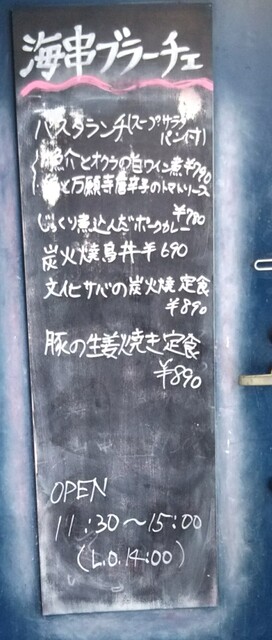 海串ブラーチェ
パスタランチ(スープ・サラダ
パン付)
魚介とオクラの白ワイン煮 ¥790
と万願寺唐辛子のトマトソース
¥780
じっくり煮込んだポークカレー
炭火焼鳥丼 ¥690
文化サバの炭火焼定食
¥890
豚の生姜焼き定食
¥890
OPEN
11:30〜15:00
(L.O.14:00)